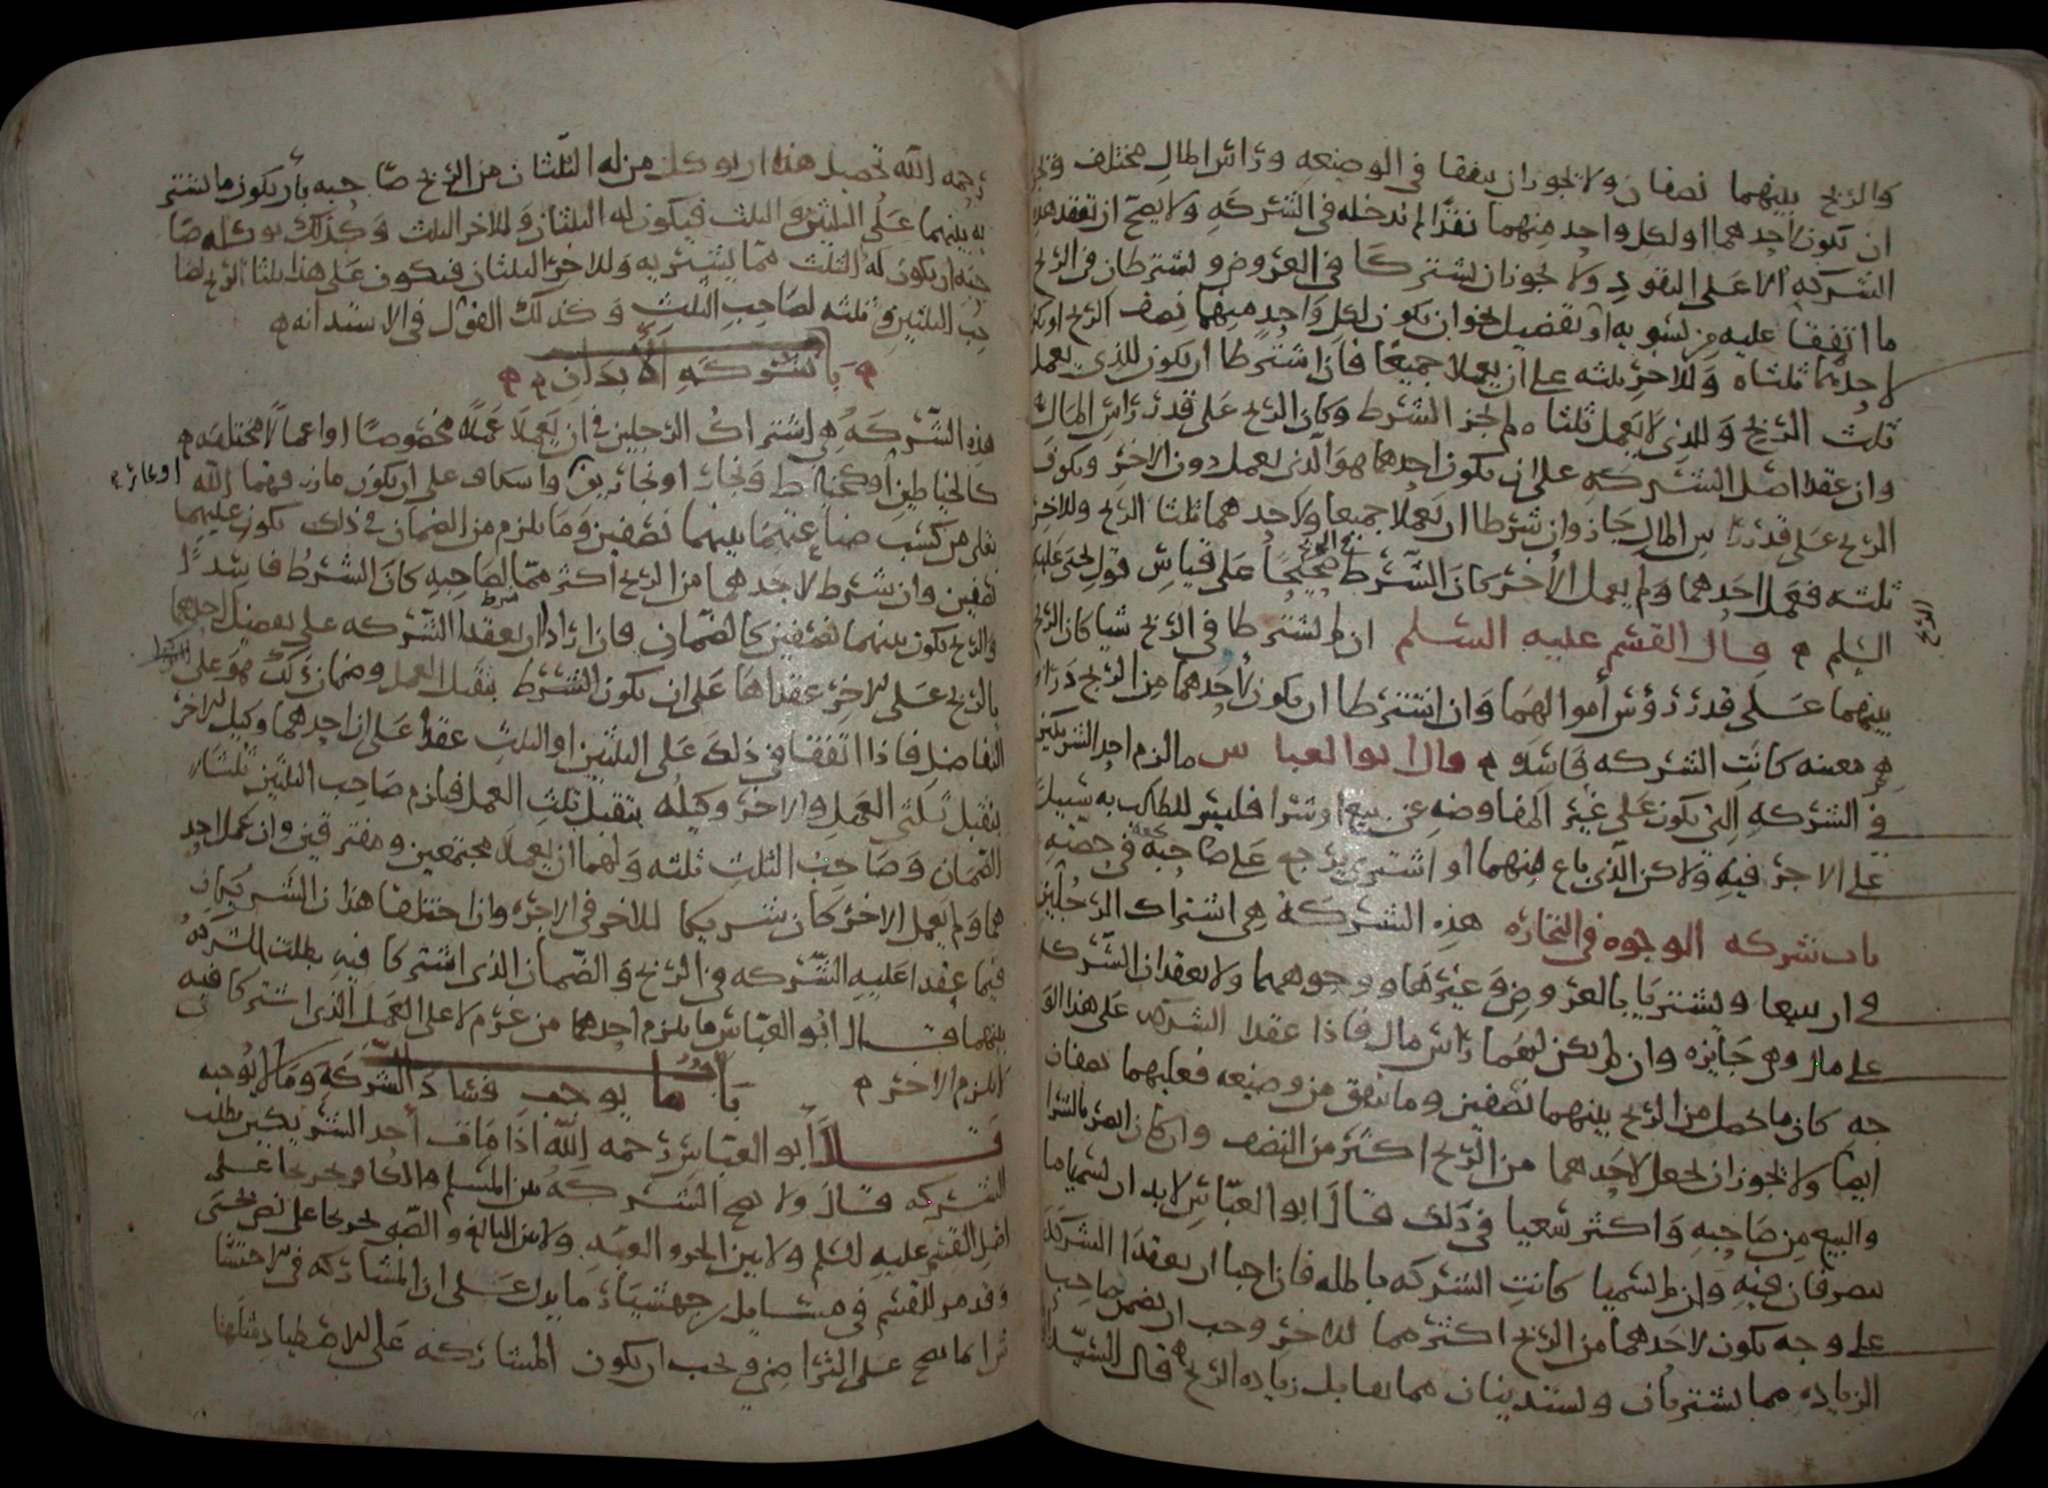 والربح بينهما نصفان ولا يجوز ان يتفقا في الوضيعه ورأس المال مختلف
ان يكون لاحدهما او لكل واحد منهما نقدًا لم يدخله في الشركه ولا يصح ان تعقد هذه
الشركه الا على النقود ولا يجوز ان يشتركا في العروض ويشترطان في الربح
ما اتفقا عليه من تسويه او تفضيل نحو ان يكون لكل واحد منهما نصف الربح او يكون
لاحدهما ثلثاه وللاخر ثلثه على ان يعملا جميعًا فاذا اشترطا ان يكون للذي يعمل
ثلث الربح وللذي لا يعمل ثلثاه لم يجز الشرط وكان الربح على قدر رأس المال
وان عقدا اصل الشركه على ان يكون احدهما هو الذي يعمل دون الاخر ويكون
الربح على قدر رأس المال جاز وان شرطا ان يعملا جميعا ولاحدهما ثلثا الربح وللاخر
ثلثه فعمل احدهما ولم يعمل الأخر كان الشرط صحيحًا على قياس قول يحيى عليه
السلم قال القسم عليه السلم ان لم يشترطا في الربح شيا كان الربح
الربح
بينهما على قدر رؤس أموالهما وان اشترطا ان يكون لأحدهما من الربح دراهم
معينه كانت الشركه فاسده قال ابو العباس ما لزم احد الشريكين
في الشركه التي تكون على غير المفاوضه عن بيع او شرا فليس للطالب به سبيل
على الاخر فيه ولاكن الذي باع منهما او اشترى يرجع على صاحبه في حصته
باب شركه الوجوه في التجاره هذه الشركة هي اشتراك الرجلين
في ان يبيعا ويشتريا بالعروض وغيرها ووجوههما ولا يعقدان الشركه
على مال وهي جايزه وان لم يكن لهما رأس مال فاذا عقدا الشركه على هذا الو
جه كان ما يحصل من الربح بينهما نصفين وما تفق من وضيعه فعليهما نصفان
ايضا ولا يجوز ان يجعل لاحدهما من الربح اكثر من النصف وان كان ابصر بالشرا
والبيع من صاحبه واكثر سعيا في ذلك قال ابو العباس لا بد ان يسميا ما
يتصرفان فيه وان لم يسميا كانت الشركه باطله فاذا احبا ان يعقدا الشركة
على وجه يكون لاحدهما من الربح اكثر مما للاخر وجب ان يضمن صاحب
الزياده مما يشتريان ويستدينان مما يقابل زياده الربح قال السيد
رحمه الله تحصيل هذا ان يوكل من له الثلثان من الربح صاحبه بأن يكون ما يشتر
يه بينهما على الثلثين والثلث فيكون له الثلثان وللاخر الثلث وكذلك يوكله صا
حبه ان يكون له الثلث مما يشتريه وللاخر الثلثان فيكون على هذا ثلثا الربح لصا
حب الثلثين وثلثه لصاحب الثلث وكذلك القول في الاستدانه
باب شركه الأبدان
هذه الشركه هي اشتراك الرجلين في ان يعملا عملًا مخصوصًا او اعمالًا مختلفه
كالخياطين او كخياط ونجار او نجارين واسكاف على ان يكون ما رزقهما الله
تعلى من كسب صناعتهما بينهما نصفين وما يلزم من الضمان في ذلك يكون عليهما
نصفين وان شرط لاحدهما من الربح اكثر مما لصاحبه كان الشرط فاسدًا
والربح يكون بينهما نصفين كالضمان فان ارادا ان يعقدا الشركه على تفضيل احدهما
بالربح على الاخر عقداها على ان يكون الشرط بتقبل العمل وضمان ذلك هو على
التفاضل فاذا اتفقا في ذلك على الثلثين او الثلث عقدا على ان احدهما وكيل الاخر
بتقبل ثلثي العمل والاخر وكيله بتقبل ثلث العمل فيلزم صاحب الثلثين ثلثا
الضمان وصاحب الثلث ثلثه ولهما ان يعملا مجتمعين ومفترقين وان عمل احد
هما ولم يعمل الاخر كان شريكا للاخر في الاجره واذا اختلفا هذان الشريكان
فيما عقدا عليه الشركه في الربح والضمان الذي اشتركا فيه بطلت الشركه
بينهما قال ابو العباس ما يلزم احدهما من غرم لا على العمل الذي اشتركا فيه
لا يلزم الاخر باب ما يوجب فساد الشركه وما لا يوجبه
قال أبو العباس رحمه الله اذا مات أحد الشريكين بطلت
الشركه قال ولا تصح الشركه بين المسلم والكافر تخريجا على
اصل القسم عليه السلم ولا بين الحر والعبد ولا بين البالغ والصبي تخريجا على نص يحيى
وقد مر للقسم في مسايل جهشيار ما يدل على ان المشاركه في الاحتشا
ش انما تصح على التراضي ويجب ان يكون المشاركه على الاصطياد مثلها